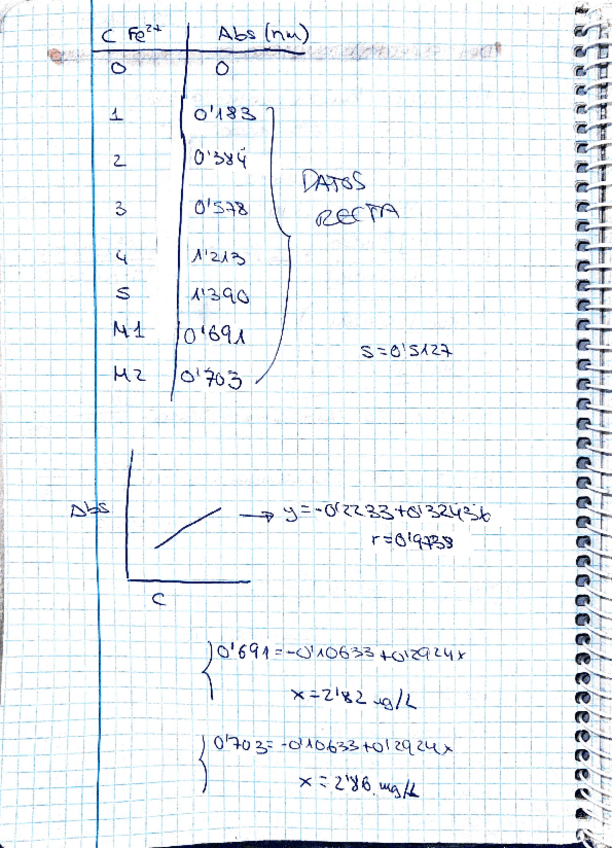 C Fe²⁺ Abs (nm)
0 0
1 0'183
2 0'384
3 0'578
4 1'213
5 1'390
M1 0'691
M2 0'703
DATOS
RECTA
S=0'5127
Abs
C
y=-0'2233+0'32436
r=0'9738
0'691=-0'10633+0'2924x
x=2'82 mg/L
0'703=-0'10633+0'2924x
x=2'86 mg/L